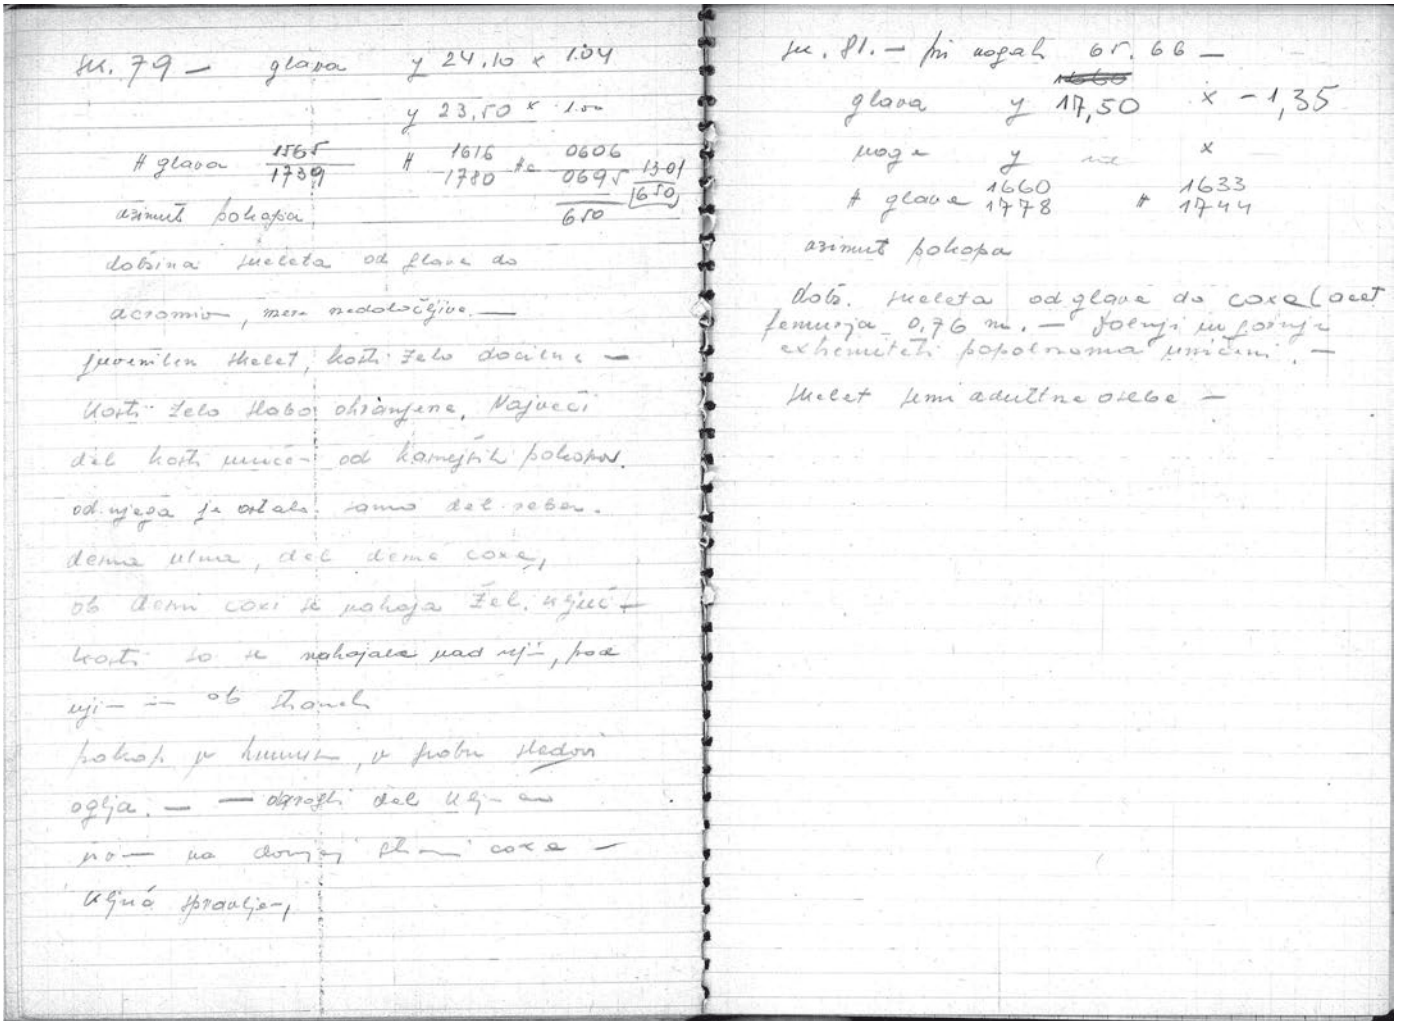 sk. 79 — glava y 24.10 x 1.04
y 23,50 x 1.00
# glava 1565 # 1616 0606 13-01
1739 1780 0695 650
azimut pokopa 650
dolžina skeleta od glave do
acromion, mera nedoločljiva. —
juvenilen skelet, kosti zelo docilne —
kosti zelo slabo ohranjene. Največji
del kosti uničen od kasnejših pokopov.
od njega je ostalo samo del reber.
desna ulna, del desne coxe,
ob desni coxi se nahaja žel. ključ —
kosti so se nahajale nad njim, pod
njim in ob straneh
pokop v humusu, v grobu sledovi
oglja. — — okrogli del ključa
na strani coxe —
ključ spravljen,
sk. 81. — pri nogah 65. 66 —
glava y 17,50 x - 1,35
noge y x
# glava 1660 # 1633
1778 1744
azimut pokopa
dolž. skeleta od glave do coxe (acet
femurja 0,76 m. — spodnji in gornje
extremiteti popolnoma uničeni. —
skelet semi adultne osebe —